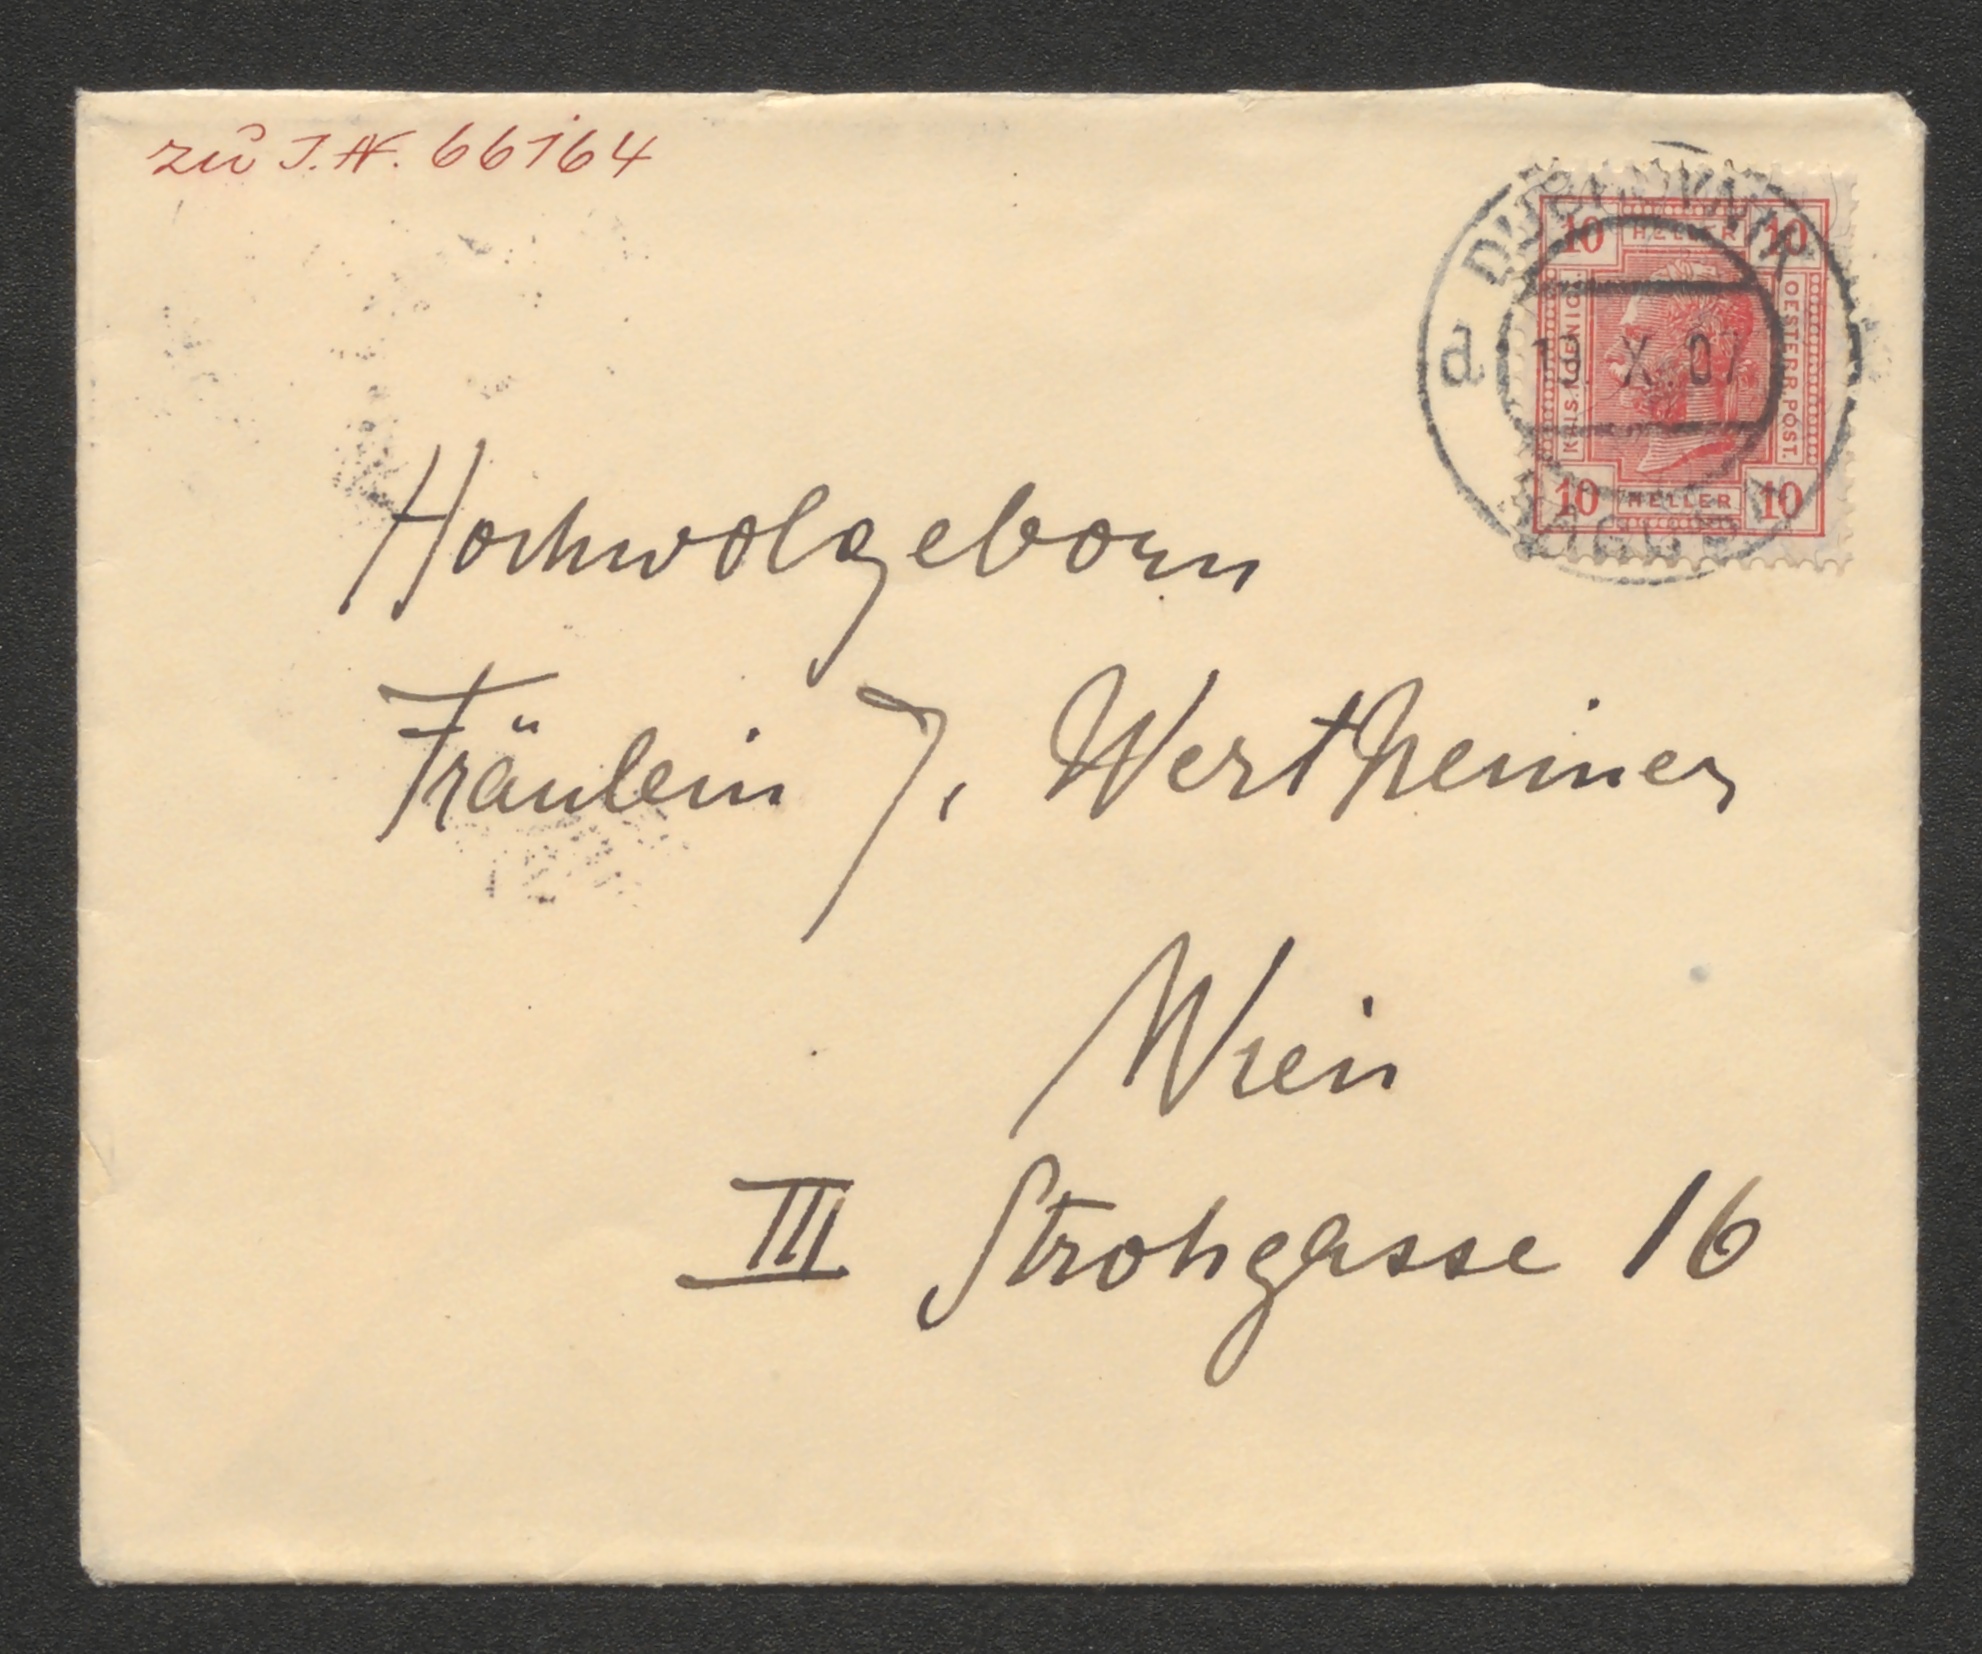 zu J. N. 66164
DUBROVNIK
d 19 X 07
RAGUSA
10 HELLER 10
KAIS. KOENIGL.
OESTERR. POST.
10 HELLER 10
Hochwolgeborn
Fräulein J. Wertheimer
Wien
III Strohgasse 16